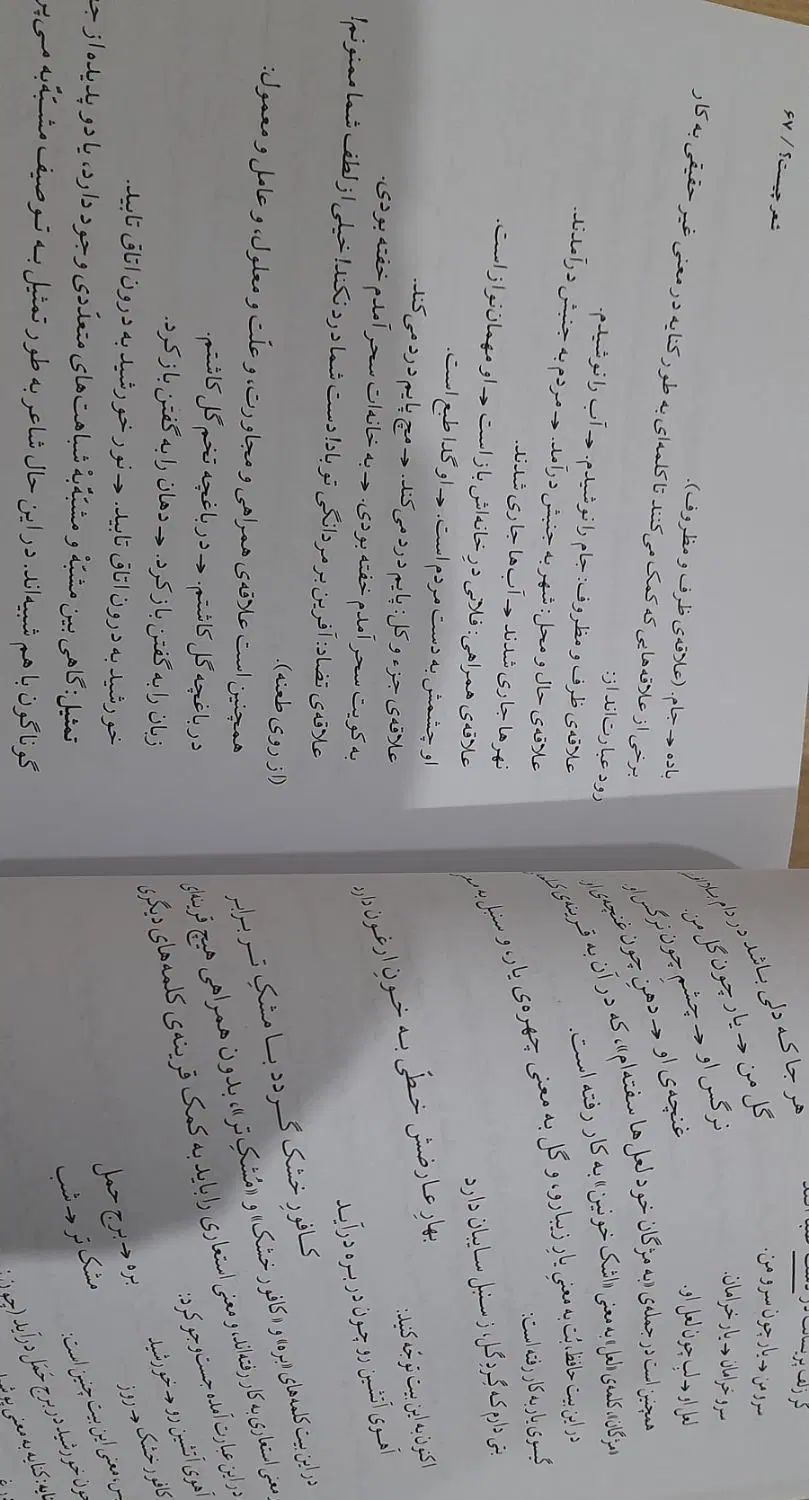 هر جا که دلی باشد در دام
گل من ← یار چون گل من.
نرگس او ← چشم چون نرگس او
غنچه‌ی او ← دهن چون غنچه‌ی او
سرو من ← یار چون سرو من.
سرو خرامان ← یار خرامان.
لعل او ← لب چون لعل او.
همچنین است در جمله‌ی «به مژگان خود لعل ها سفته‌ام»، که در آن به قرینه‌ی
«مژگان»، کلمه‌ی «لعل» به معنی «اشک خونین» به کار رفته است.
در این بیت حافظ، بُت به معنیِ یارِ زیبارو، و گل به معنی چهره‌ی یار، و سنبل به
گیسوی یار به کار رفته است:
بتی دارم که گِردِ گل، ز سنبل سایبان دارد
بهارِ عارضش خطّی به خونِ ارغوان دارد
اکنون به این بیت توجّه کنید:
آهوی آتشین رو چون در بره درآید
کافورِ خشک گردد با مشکِ تر برابر
در این بیت کلمه‌های «بره» و «کافور خشک» و «مُشکِ تر»، بدون همراهی هیچ قرینه‌ای
معنی استعاری به کار رفته‌اند، و معنی استعاری را باید به کمک قرینه‌ی کلمه‌های دیگری
در این عبارت آمده جست‌وجو کرد:
آهوی آتشین رو ← خورشید
بره ← برج حمل
کافور خشک ← روز
مشک تر ← شب
معنی این بیت چنین است:
چون خورشید در برج حَمَل درآید (چون
شعر چیست؟ / ۶۷
باده ← جام. (علاقه‌ی ظرف و مظروف).
برخی از علاقه‌هایی که کمک می‌کنند تا کلمه‌ای به طور کنایه در معنی غیر حقیقی به کار
رود عبارت‌اند از:
علاقه‌ی ظرف و مظروف: جام را نوشیدم. ← آب را نوشیدم.
علاقه‌ی حال و محل: شهر به جنبش درآمد. ← مردم به جنبش درآمدند.
نهرها جاری شدند ← آب‌ها جاری شدند.
علاقه‌ی همراهی: فلانی درِ خانه‌اش باز است ← او مهمان‌نواز است.
او چشمش به دست مردم است. ← او گدا طبع است.
علاقه‌ی جزء و کل: پایم درد می‌کند. ← مچ پایم درد می‌کند.
به کویت سحر آمدم خفته بودی. ← به خانه‌ات سحر آمدم خفته بودی.
علاقه‌ی تضاد: آفرین بر مردانگی تو باد! دست شما درد نکند! خیلی از لطف شما ممنونم!
(از روی طعنه).
همچنین است علاقه‌ی همراهی و مجاورت، و علّت و معلول، و عامل و معمول:
در باغچه گل کاشتم. ← در باغچه تخم گل کاشتم.
زبان را به گفتن باز کرد. ← دهان را به گفتن باز کرد.
خورشید به درون اتاق تابید. ← نور خورشید به درون اتاق تابید.
تمثیل: گاهی بین مشبّهْ و مشبّهٌ‌به شباهت‌های متعدّدی وجود دارد، یا دو پدیده از
گوناگون با هم شبیه‌اند. در این حال شاعر به طور تمثیل به توصیف مشبّهٌ‌به می‌پر